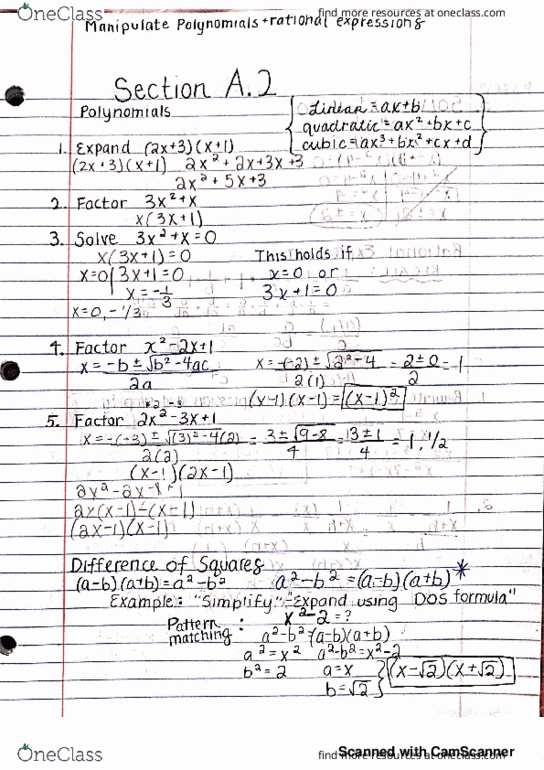 OneClass
find more resources at oneclass.com
Manipulate Polynomials + rational expressions
Section A.2
Polynomials
Linear = ax+b
quadratic = ax² + bx + c
cubic = ax³ + bx² + cx + d
1. Expand (2x+3)(x+1)
(2x+3)(x+1) 2x² + 2x + 3x + 3
2x² + 5x + 3
2. Factor 3x² + x
x(3x+1)
3. Solve 3x² + x = 0
x(3x+1) = 0 This holds if
x=0 | 3x+1=0 x=0 or
x = -1/3 3x+1=0
x=0, -1/3
4. Factor x² - 2x + 1
x = -b ± √b² - 4ac / 2a x = -(-2) ± √2² - 4 / 2(1) = 2 ± 0 / 2 = 1
(x-1)(x-1) = (x-1)²
5. Factor 2x² - 3x + 1
x = -(-3) ± √(3)² - 4(2) / 2(2) = 3 ± √9-8 / 4 = 3 ± 1 / 4 = 1, 1/2
(x-1)(2x-1)
2x² - 2x - x + 1
2x(x-1) - (x-1)
(2x-1)(x-1)
Difference of Squares
(a-b)(a+b) = a² - b² a² - b² = (a-b)(a+b) *
Example: "Simplify." "Expand using DOS formula"
x² - 2 = ?
Pattern matching: a² - b² = (a-b)(a+b)
a² = x² a² - b² = x² - 2
b² = 2 a = x
b = √2 } (x-√2)(x+√2)
Scanned with CamScanner
OneClass
find more resources at oneclass.com